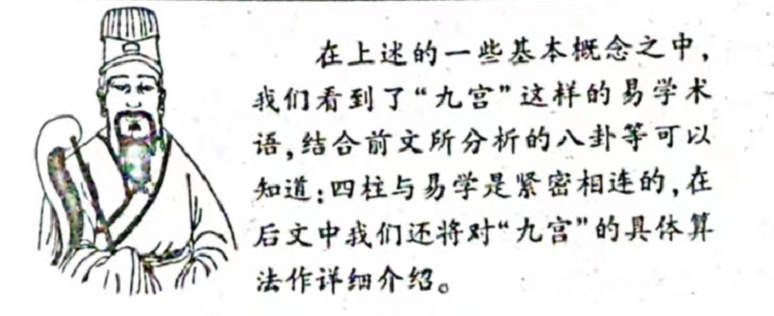 在上述的一些基本概念之中,
我们看到了“九宫”这样的易学术
语,结合前文所分析的八卦等可以
知道:四柱与易学是紧密相连的,在
后文中我们还将对“九宫”的具体算
法作详细介绍。